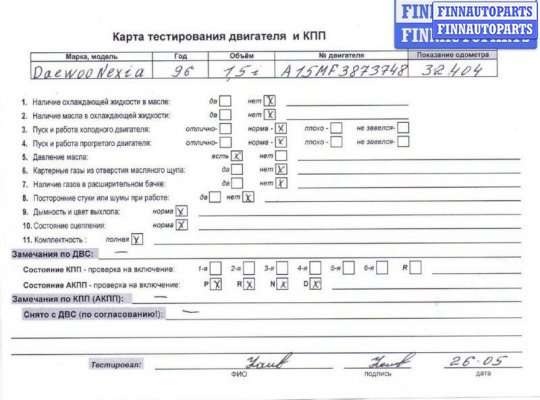 FINNAUTOPARTS
FINNAUTOPARTS
Карта тестирования двигателя и КПП
Марка, модель Год Объём № двигателя Показание одометра
Daewoo Nexia 96 1,5i A15MF3873748 32404
1. Наличие охлаждающей жидкости в масле: да нет X
2. Наличие масла в охлаждающей жидкости: да нет X
3. Пуск и работа холодного двигателя: отлично- норма - X плохо - не завелся-
4. Пуск и работа прогретого двигателя: отлично- норма - X плохо - не завелся-
5. Давление масла: есть X нет
6. Картерные газы из отверстия масляного щупа: да нет X
7. Наличие газов в расширительном бачке: да нет X
8. Посторонние стуки или шумы при работе: да нет X
9. Дымность и цвет выхлопа: норма X
10. Состояние сцепления: норма X
11. Комплектность : полная X
Замечания по ДВС: —
Состояние КПП - проверка на включение: 1-я 2-я 3-я 4-я 5-я 6-я R
Состояние АКПП - проверка на включение: P X R X N X D X
Замечания по КПП (АКПП): —
Снято с ДВС (по согласованию!): —
Тестировал: 26-05
ФИО подпись дата